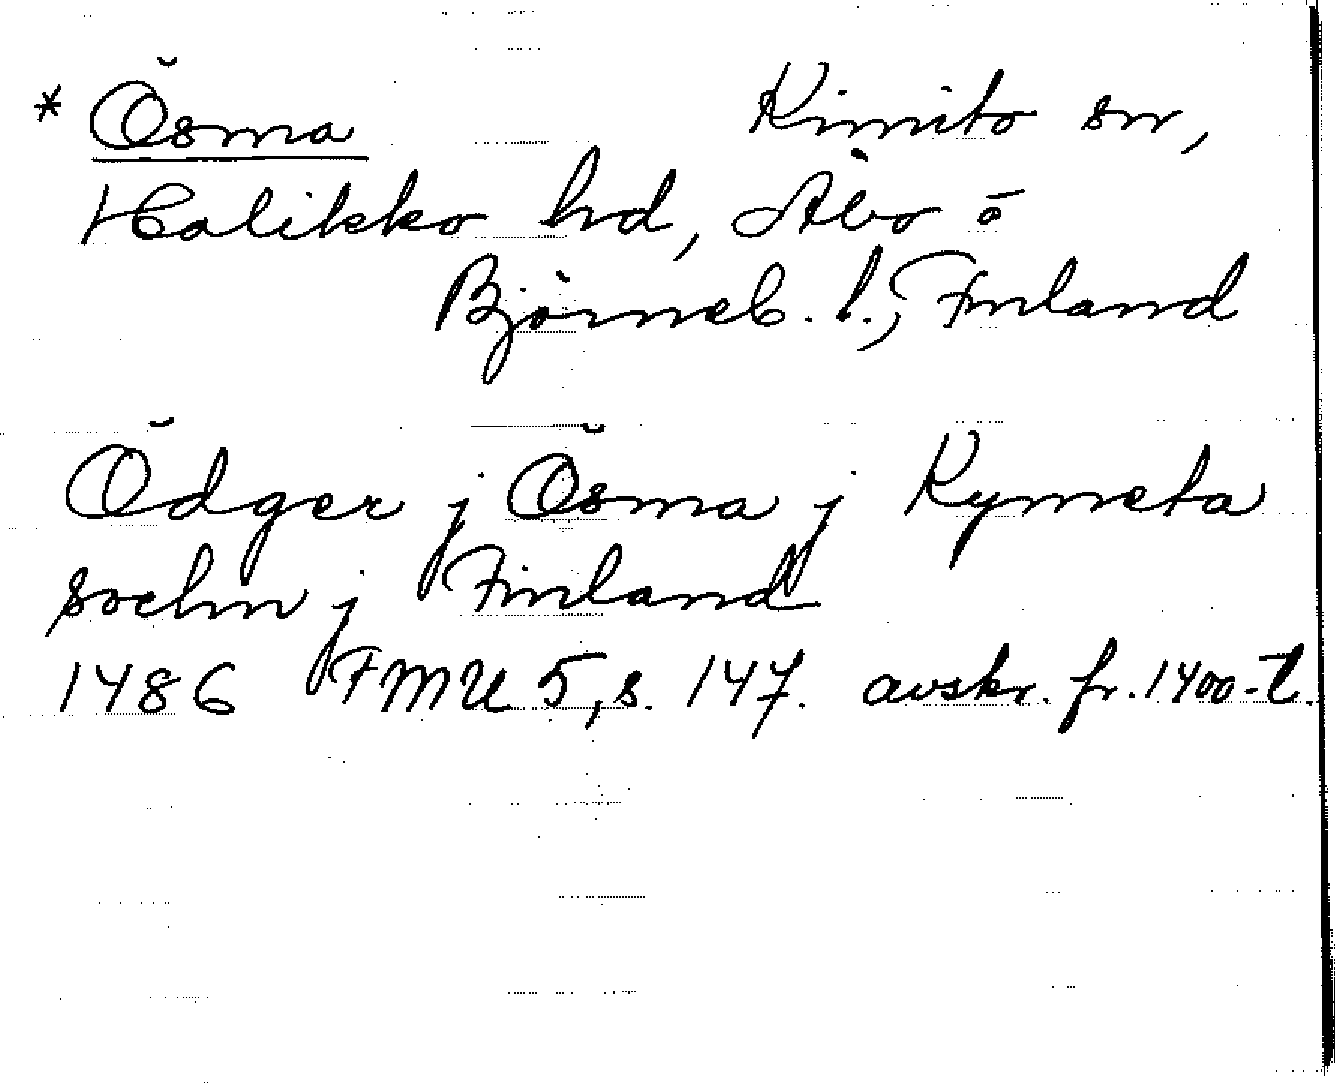 * Ösma Kimito sn,
Halikko hd, Åbo o
Björneb. l., Finland
Ödger j Ösma j Kymeta
sochn j Finland
1486 FMU 5, s. 147. avskr. fr. 1400-t.